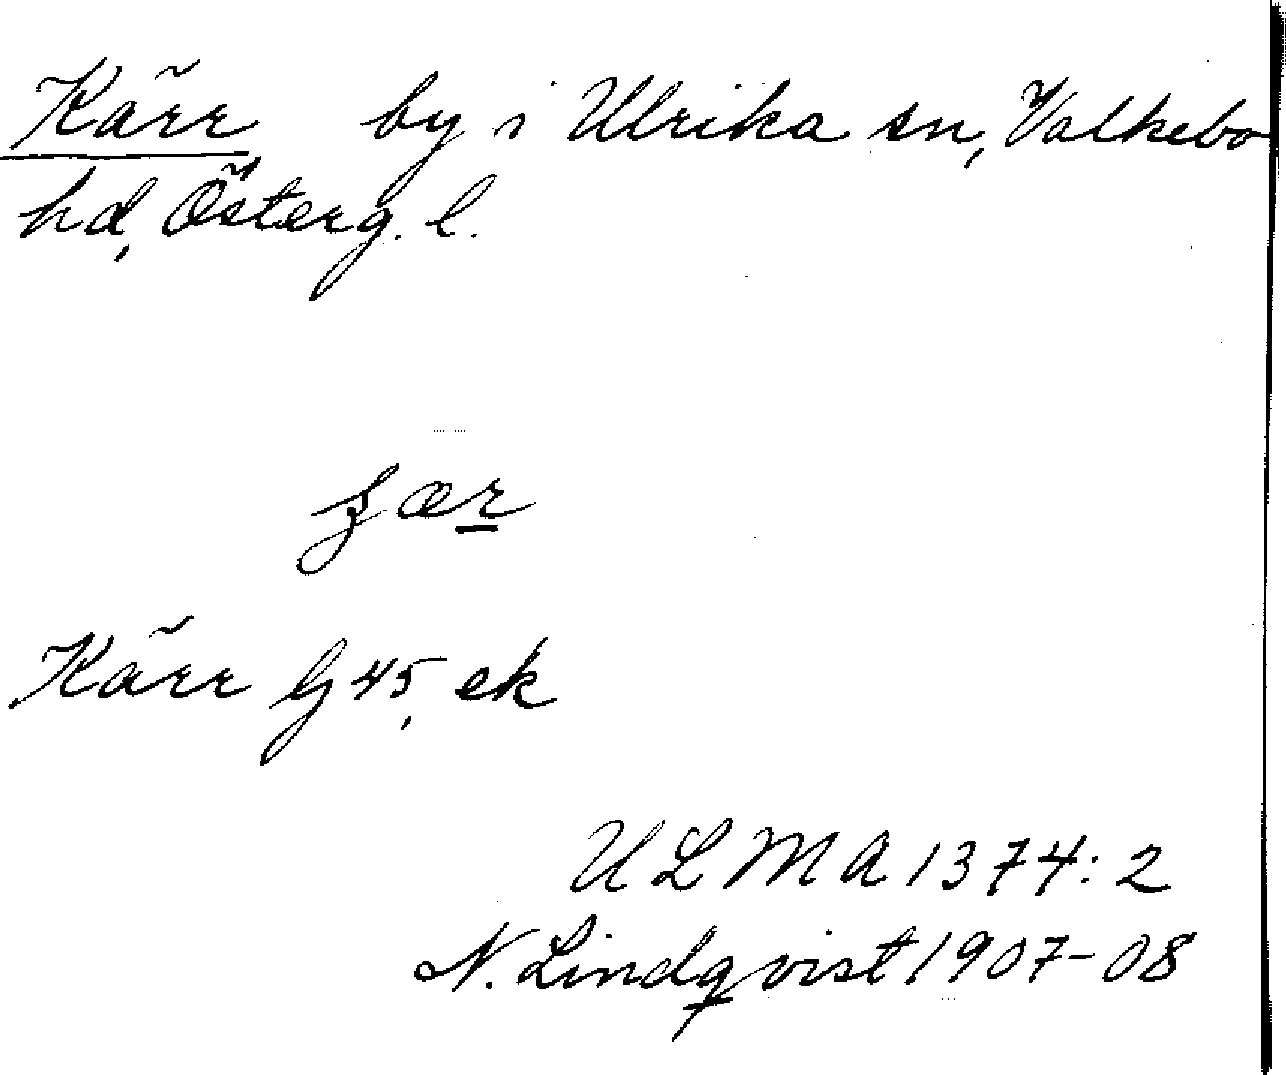 Kärr by i Ulrika sn, Valkebo
hd, Österg. l.
ʂær
Kärr G 45, ek
ULMA 1374:2
N. Lindqvist 1907-08